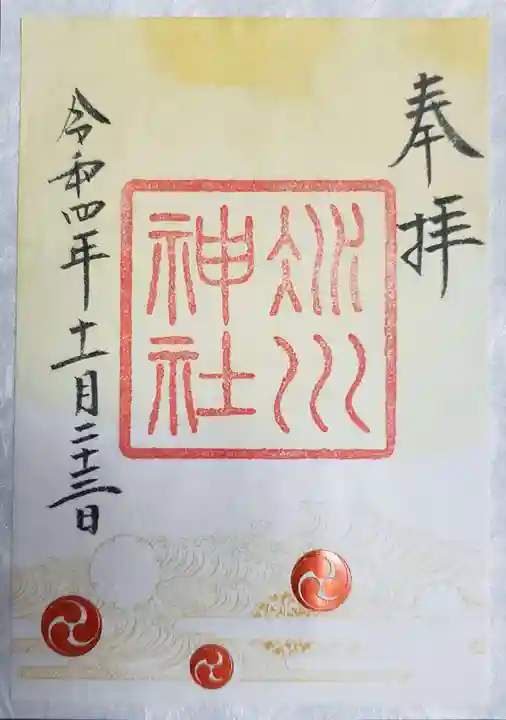 奉拝
氷川
神社
令和四年十一月二十三日